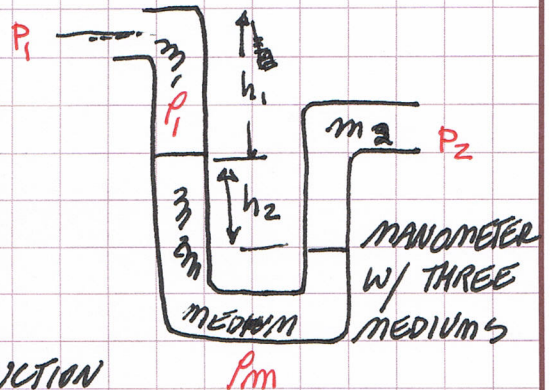 P1
m1
P1
h1
m2
P2
h2
MANOMETER
W/ THREE
MEDIUMS
MEDIUM
ρm